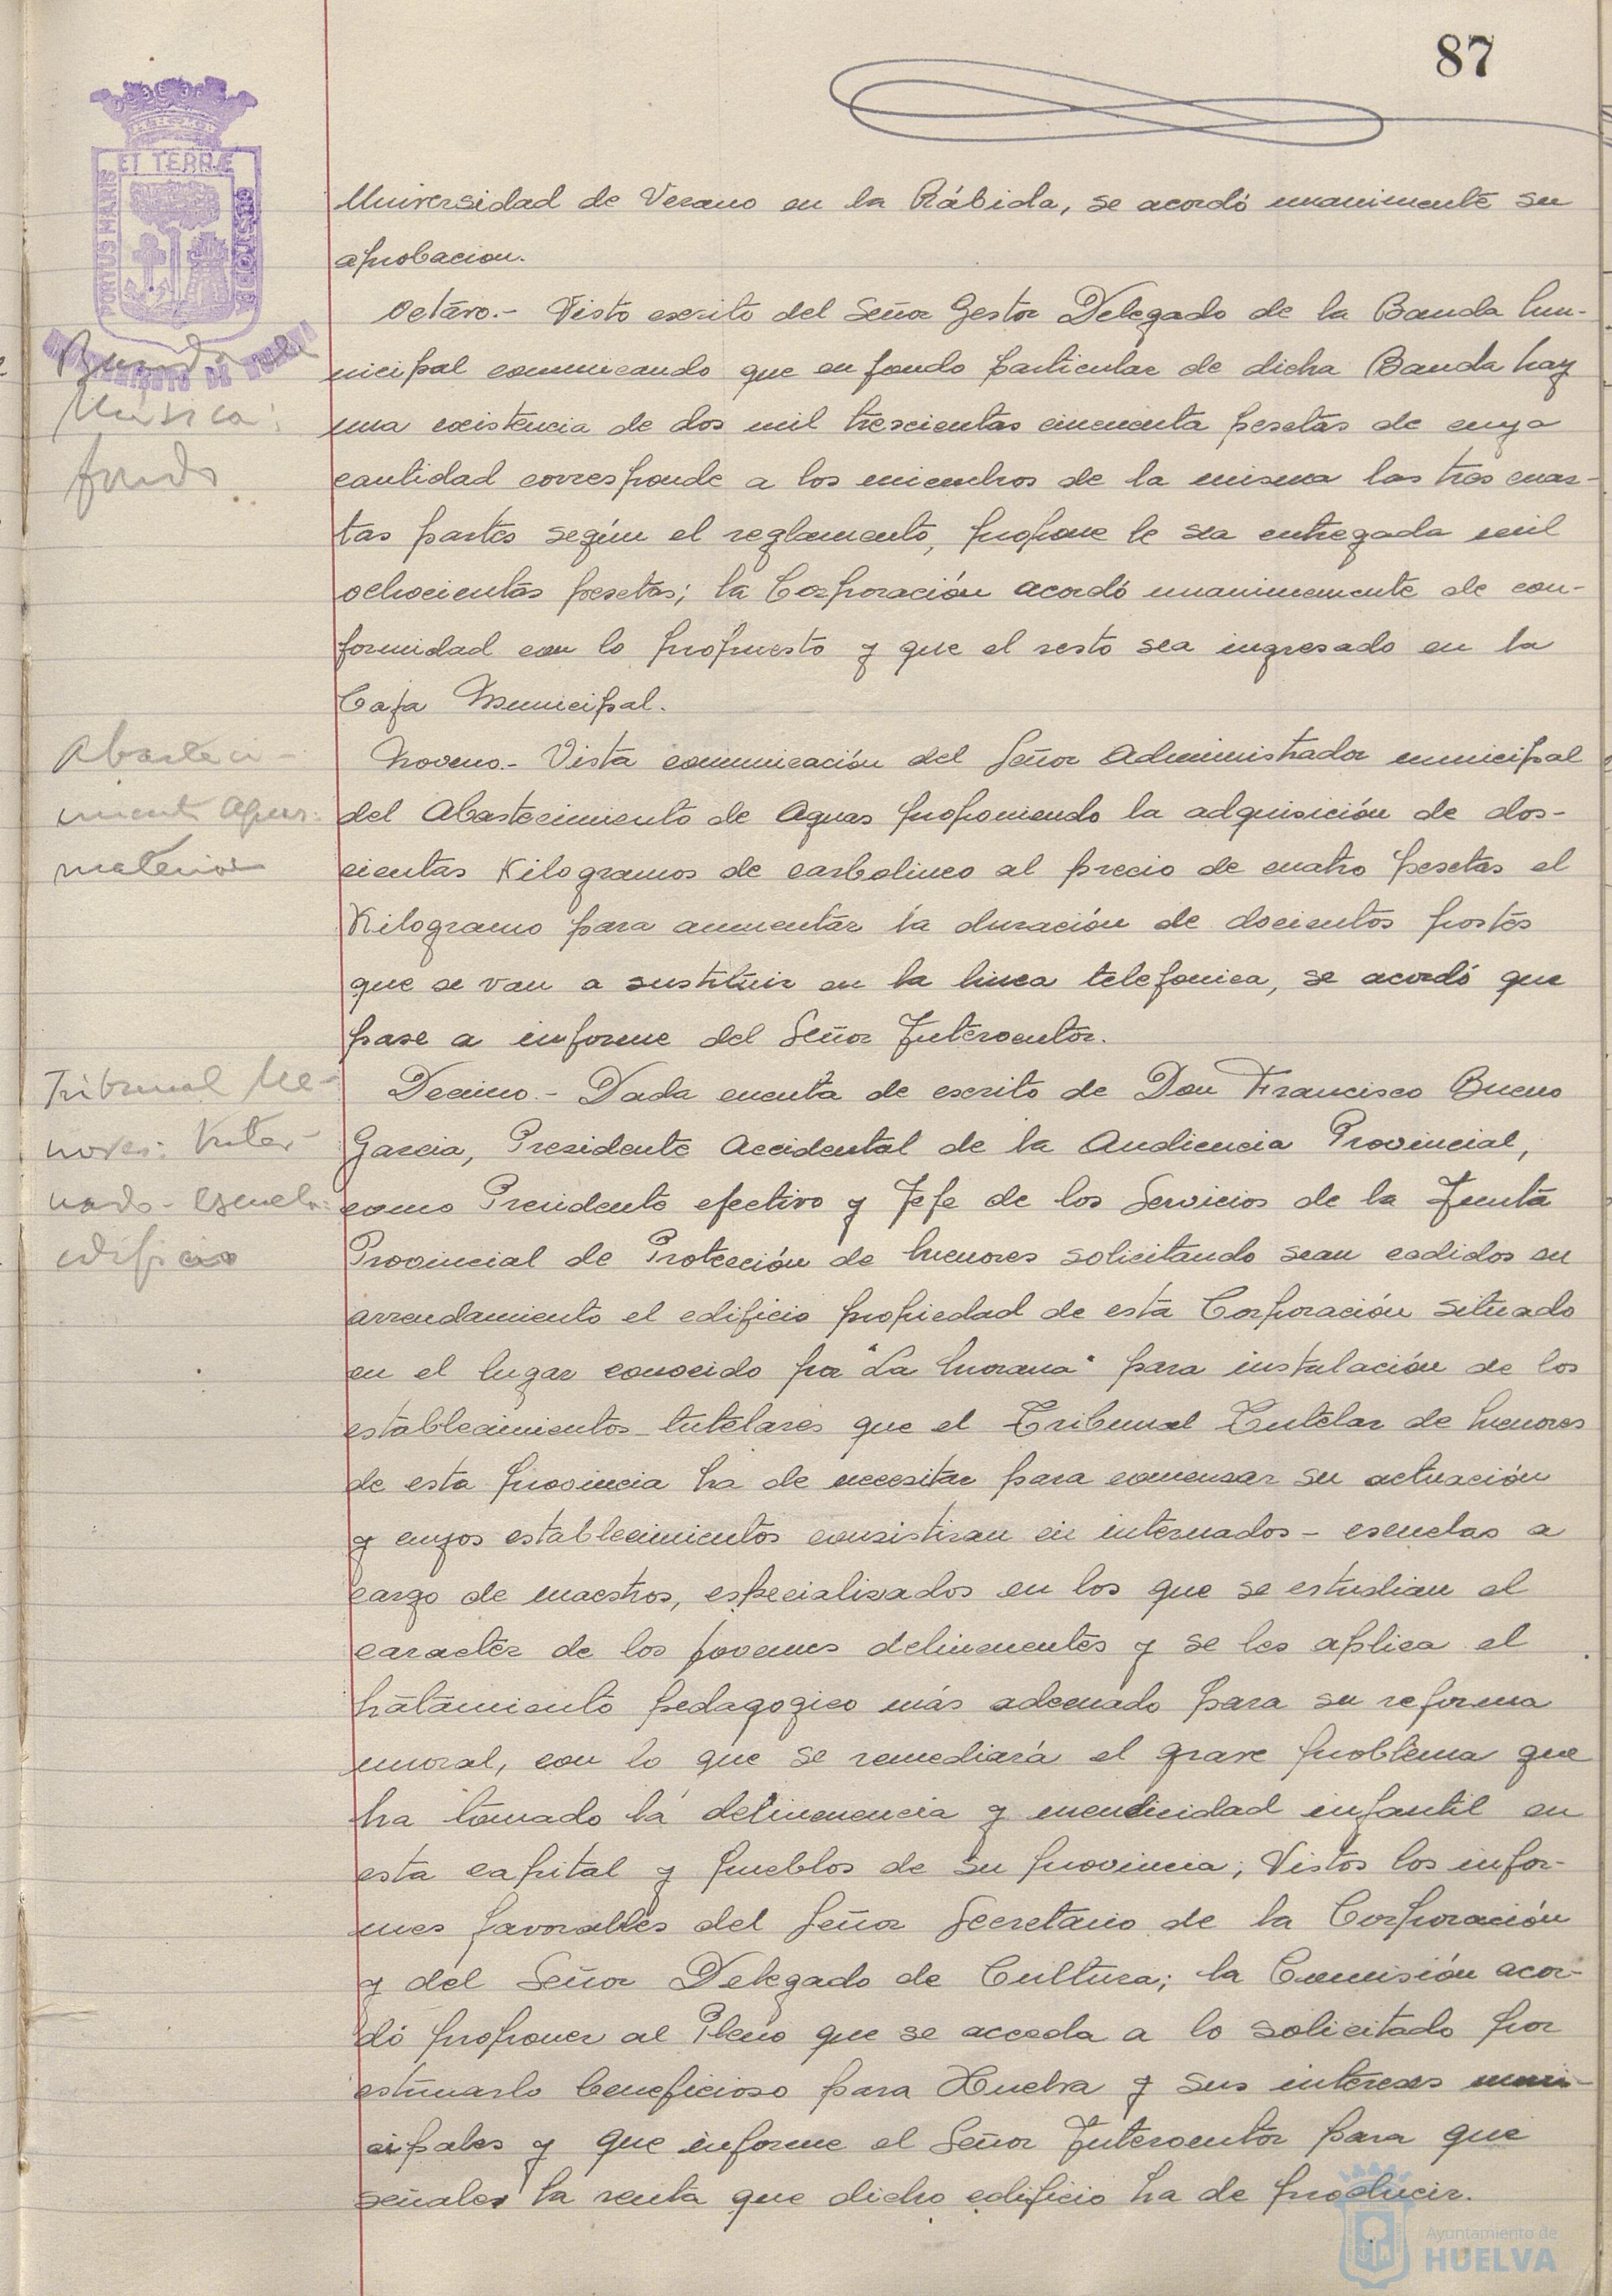 87
PORTUS MARIS
ET TERRÆ
CUSTODIA
AYUNTAMIENTO DE HUELVA
Universidad de Verano en la Rábida, se acordó unanimente su
aprobacion.
Octavo.- Visto escrito del Señor Gestor Delegado de la Banda Mu-
nicipal comunicando que en fondo particular de dicha Banda hay
una existencia de dos mil trescientas cincuenta pesetas de cuya
cantidad corresponde a los miembros de la misma las tres cuar-
tas partes según el reglamento, propone le sea entregada mil
ochocientas pesetas; la Corporación acordó unanimemente de con-
formidad con lo propuesto y que el resto sea ingresado en la
Caja Municipal.
Banda de
Música:
fondo
Noveno.- Vista comunicación del Señor Administrador municipal
del Abastecimiento de Aguas proponiendo la adquisición de dos-
cientas Kilogramos de carbolineo al precio de cuatro pesetas el
Kilogramo para aumentar la duración de docientos postes
que se van a sustituir en la linea telefonica, se acordó que
pase a informe del Señor Interventor.
Abasteci-
miento Aguas:
material
Decimo.- Dada cuenta de escrito de Don Francisco Bueno
Garcia, Presidente Accidental de la Audiencia Provincial,
como Presidente efectivo y Jefe de los Servicios de la Junta
Provincial de Protección de Menores solicitando sean cedidos en
arrendamiento el edificio propiedad de esta Corporación situado
en el lugar conocido por "La Morana" para instalación de los
establecimientos tutelares que el Tribunal Tutelar de Menores
de esta provincia ha de necesitar para comensar su actuación
y cuyos establecimientos consistiran en internados - escuelas a
cargo de maestros, especialisados en los que se estudian el
caracter de los jovenes delincuentes y se les aplica el
tratamiento pedagogico más adecuado para su reforma
moral, con lo que se remediará el grave problema que
ha tomado la delincuencia y mendicidad infantil en
esta capital y pueblos de su provincia; Vistos los infor-
mes favorables del Señor Secretario de la Corporación
y del Señor Delegado de Cultura; la Comisión acor-
dó proponer al Pleno que se acceda a lo solicitado por
estimarlo beneficioso para Huelva y sus intereses muni-
cipales y que informe el Señor Interventor para que
señales la renta que dicho edificio ha de producir.
Tribunal Me-
nores: Inter-
nado - Escuela:
edificio
Ayuntamiento de
HUELVA